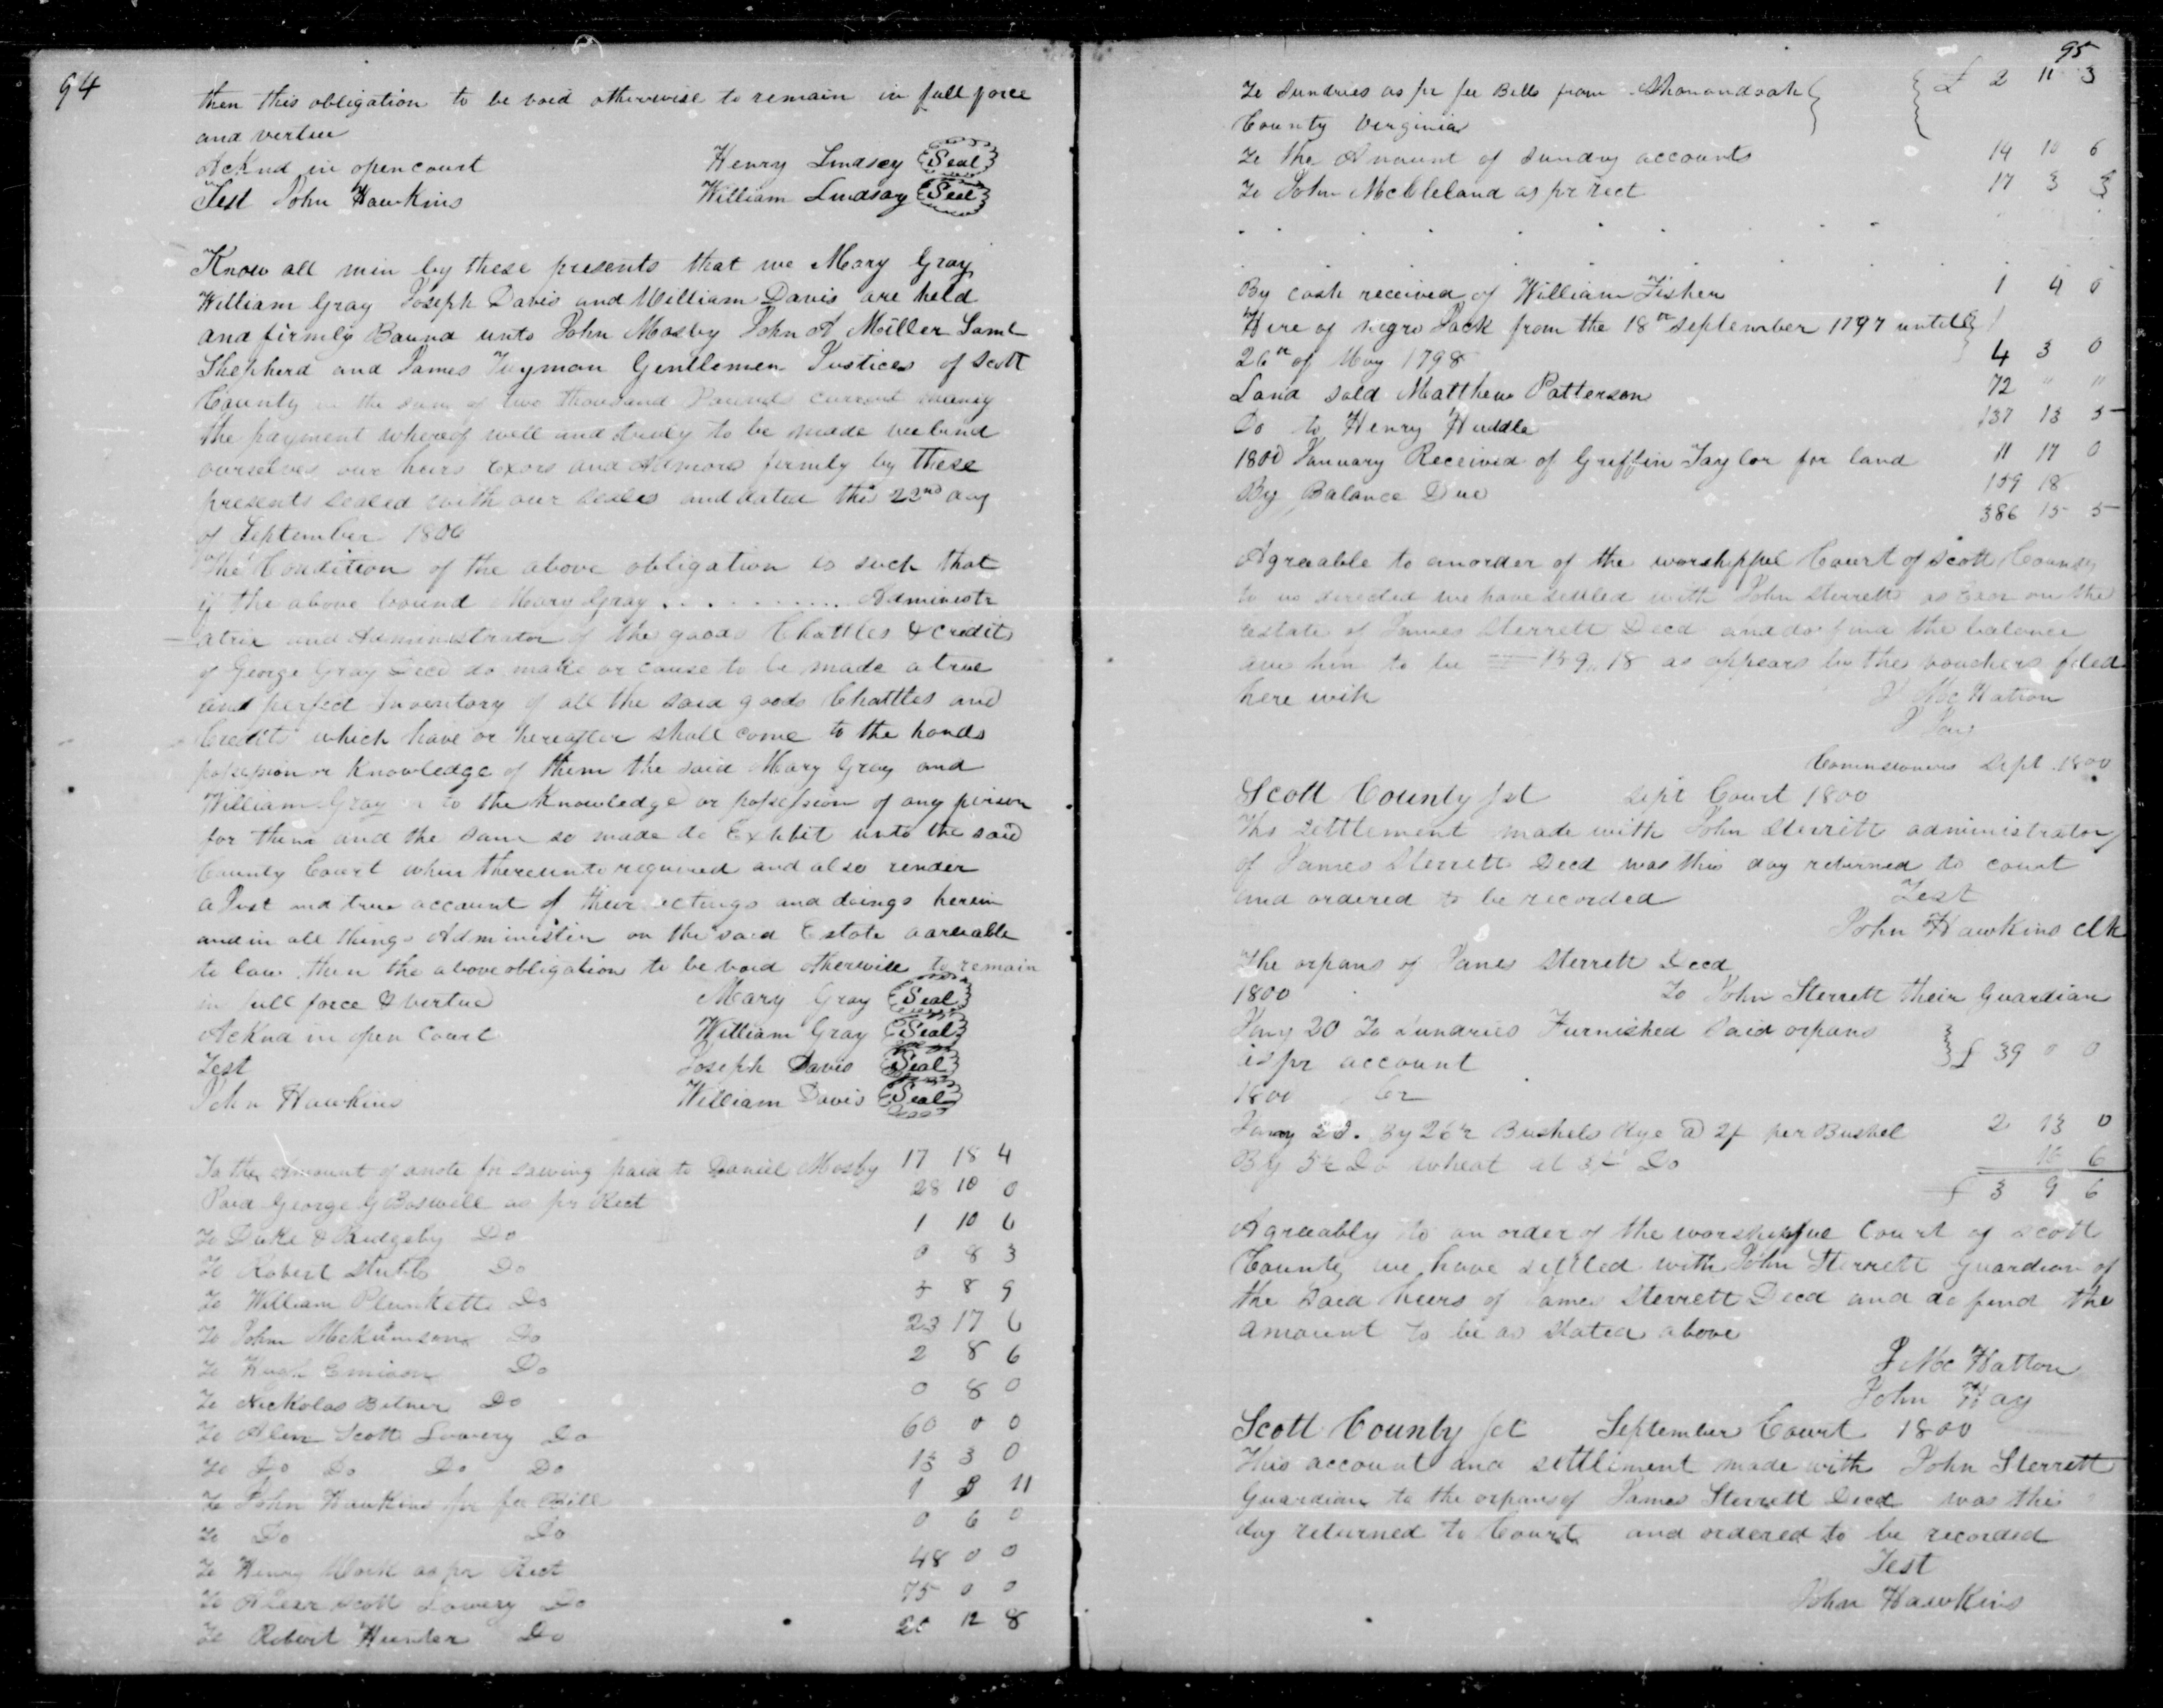 94
then this obligation to be void otherwise to remain in full force
and vertue
Acknd in open court Henry Lindsey Seal
Test John Hawkins William Lindsay Seal
Know all min by these presents that we Mary Gray
William Gray Joseph Davis and William Davis are held
and firmly Bound unto John Mosby John A Miller Saml
Shepherd and James Gentlemen Justices of Scott
County in the sum of two thousand Pounds current money
the payment whereof well and truly to be made we bind
ourselves our heirs Exors and Admors firmly by these
presents sealed with our seales and dated this 22nd day
of September 1800
The Condition of the above obligation is such that
if the above bound Mary Gray . . . . . . . . . . Administr
atrix and Administrator of the goods Chattles & credits
of George Gray Decd do make or cause to be made a true
and perfect Inventory of all the said goods Chattles and
Credits which have or hereafter shall come to the hands
possession or Knowledge of them the said Mary Gray and
William Gray or to the Knowledge or possession of any person
for them and the same so made do Exhibit unto the said
County Court when thereunto required and also render
a Just and true account of their actings and doings herein
and in all things Administer on the said Estate agreeable
to law then the above obligation to be void otherwise to remain
in full force & vertue Mary Gray Seal
Acknd in open Court William Gray Seal
Test Joseph Davis Seal
John Hawkins William Davis Seal
To the Amount of a note for sawing paid to Daniel Mosby 17 18 4
Paid George G Boswell as pr Rect 28 10 0
To Duke & Do 1 10 6
To Robert Stubbs Do 0 8 3
To William Plunkett Do 8 9
To John Do 23 17 6
To Hugh Emison Do 2 8 6
To Nickolas Bitner Do 0 8 0
To Alexr Scott Lowery Do 60 0 0
To Do Do Do Do 13 3 0
To John Hawkins pr fee Bill 1 3 11
To Do Do 0 6 0
To Henry Work as pr Rect 48 0 0
To Alexr Scott Lowery Do 75 0 0
To Robert Hunter Do 20 12 8
95
To Sundries as pr fee Bills from Shanandoah £ 2 11 3
County Virginia
To the Amount of sundry accounts 14 10 6
To John McCleland as pr rect 17 3 3
By cash received of William Fisher 1 4 0
Hire of negro Jack from the 18th september 1797 untill
26th of May 1798 4 3 0
Land sold Matthew Patterson 72 " "
Do to Henry Huddle 137 13 5
1800 January Received of Griffin Taylor for land 11 17 0
By Balance Due 159 18
386 15 5
Agreable to an order of the worshipful Court of Scott County
to us directed we have settled with John Sterrett as Exor on the
estate of James Sterrett Decd and do find the balance
due him to be 159..18 as appears by the vouchers filed
here with J McHatton
Commissioners Sept 1800
Scott County Sct Sept Court 1800
This settlement made with John Sterritt administrator
of James Sterrett Decd was this day returned to court
and ordered to be recorded Test
John Hawkins clk
The orpans of James Sterrett Decd
1800 To John Sterrett their Guardian
Jany 20 To sundries Furnished said orpans
as pr account £ 39 0 0
1800 Cr
Jany 20. By 26½ Bushels Rye @ 2/ per Bushel 2 13 0
By 5½ Do wheat at 3/ Do 16 6
£ 3 9 6
Agreeably to an order of the worshipful Court of Scott
County we have settled with John Sterrett guardian of
the said heirs of James Sterrett Decd and do find the
amount to be as stated above
J McHatton
John Hay
Scott County Sct September Court 1800
This account and settlement made with John Sterrett
Guardian to the orpans of James Sterrett Decd was this
day returned to Court and ordered to be recorded
Test
John Hawkins